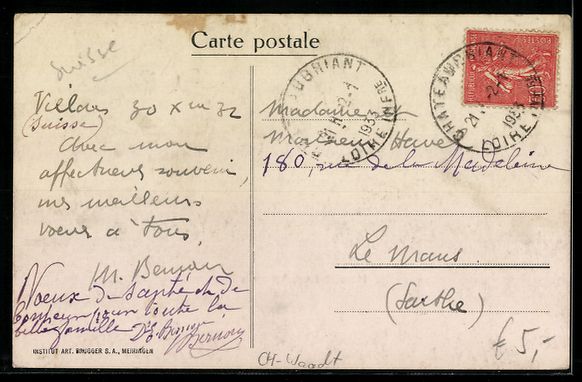 Suisse
Carte postale
Villars 30 XII 32
(Suisse)
Avec mon
affectueux souvenir,
mes meilleurs
voeux à tous,
M. Benjain
Voeux de santé et de
bonheur pour toute la
belle famille
INSTITUT ART. BRÜGGER S. A., MEIRINGEN
CHATEAUBRIANT
21
2-1
1933
LOIRE INFRE
POSTES
Madame et
Monsieur
180, rue de la Madeleine
Le Mans
(Sarthe)
£ 5,-
CH-Waadt